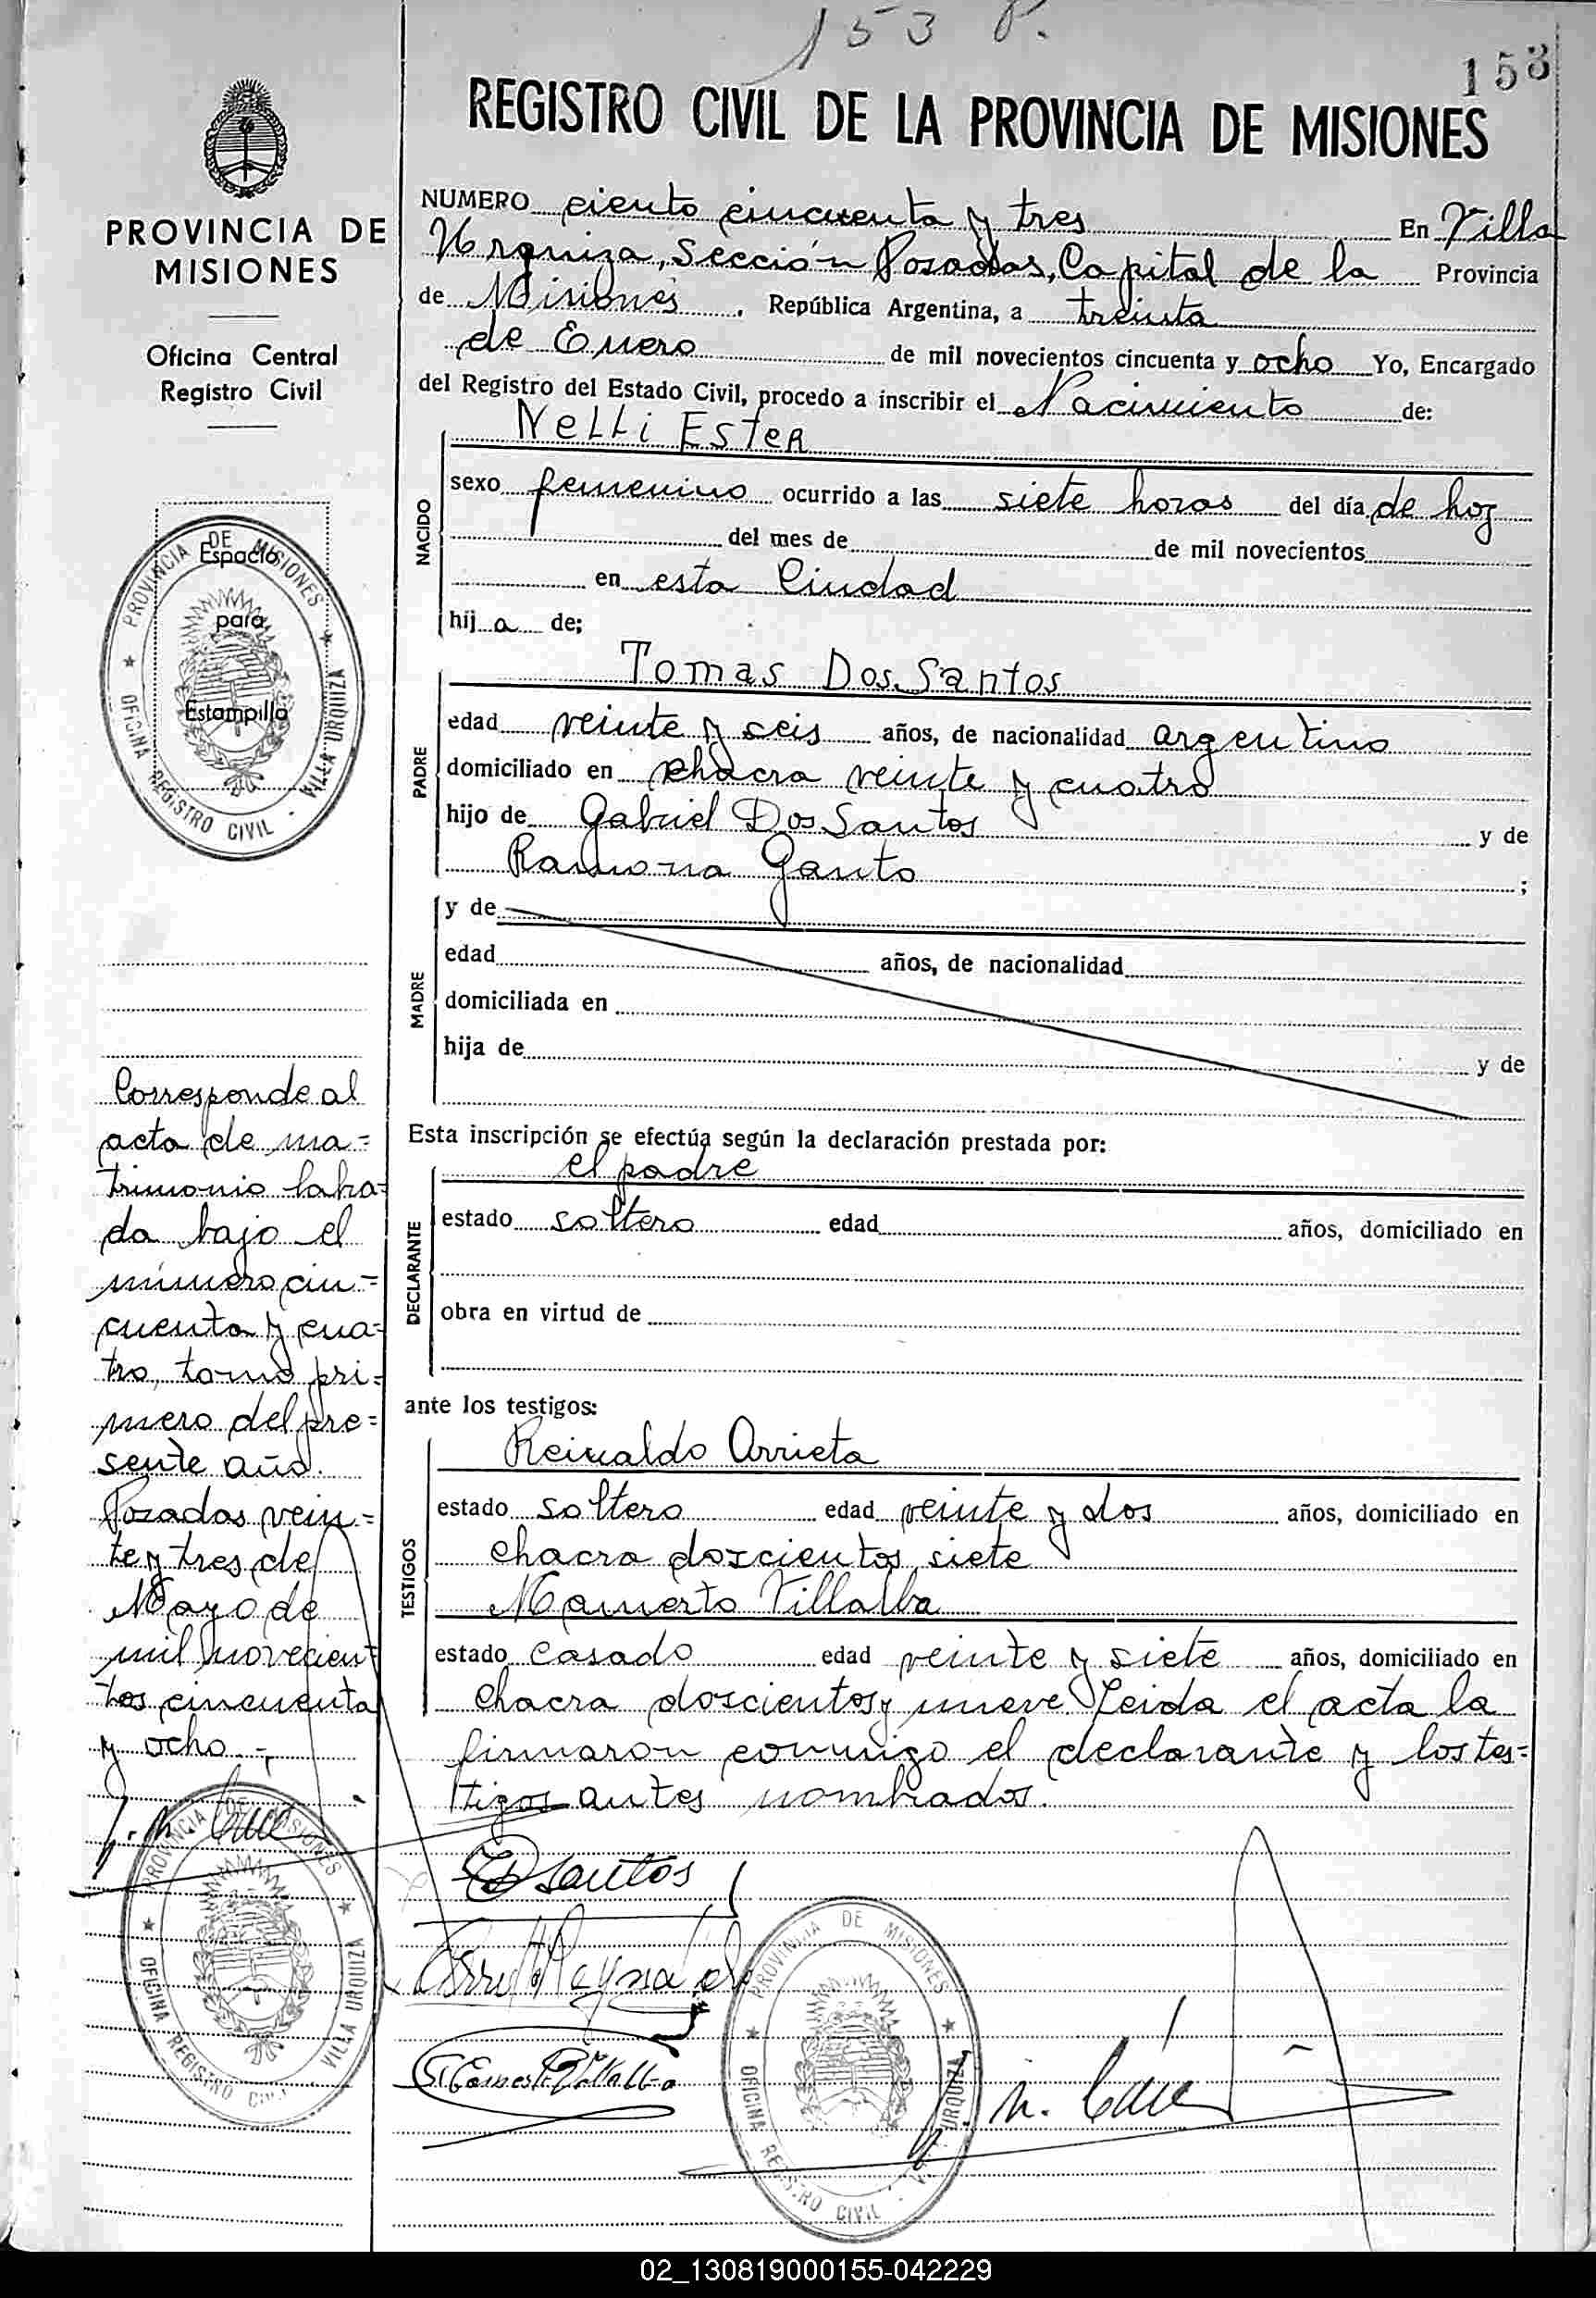 153 P.
153
REGISTRO CIVIL DE LA PROVINCIA DE MISIONES
PROVINCIA DE
MISIONES
Oficina Central
Registro Civil
PROVINCIA DE MISIONES
OFICINA REGISTRO CIVIL - VILLA URQUIZA
Espacio
para
Estampilla
NUMERO ciento cincuenta y tres En Villa
Urquiza, Sección Posadas, Capital de la Provincia
de Misiones, República Argentina, a treinta
de Enero de mil novecientos cincuenta y ocho Yo, Encargado
del Registro del Estado Civil, procedo a inscribir el Nacimiento de:
NACIDO
Nelli Ester
sexo femenino ocurrido a las siete horas del día de hoy
del mes de de mil novecientos
en esta Ciudad
hij a de;
PADRE
Tomas Dos Santos
edad veinte y seis años, de nacionalidad argentino
domiciliado en chacra veinte y cuatro
hijo de Gabriel Dos Santos y de
Ramona Gauto ;
MADRE
y de
edad años, de nacionalidad
domiciliada en
hija de y de
Esta inscripción se efectúa según la declaración prestada por:
DECLARANTE
el padre
estado soltero edad años, domiciliado en
obra en virtud de
ante los testigos:
TESTIGOS
Reinaldo Arrieta
estado soltero edad veinte y dos años, domiciliado en
chacra doscientos siete
Mamerto Villalba
estado casado edad veinte y siete años, domiciliado en
chacra doscientos y nueve Leida el acta la
firmaron conmigo el declarante y los tes=
tigos antes nombrados.
Corresponde al
acta de ma=
trimonio labra=
da bajo el
número cin=
cuenta y cua=
tro, tomo pri=
mero del pre=
sente año.
Posadas vein=
te y tres de
Mayo de
mil novecien=
tos cincuenta
y ocho.-
PROVINCIA DE MISIONES
OFICINA REGISTRO CIVIL VILLA URQUIZA
DSantos
PROVINCIA DE MISIONES
OFICINA REGISTRO CIVIL - VILLA URQUIZA
02_130819000155-042229